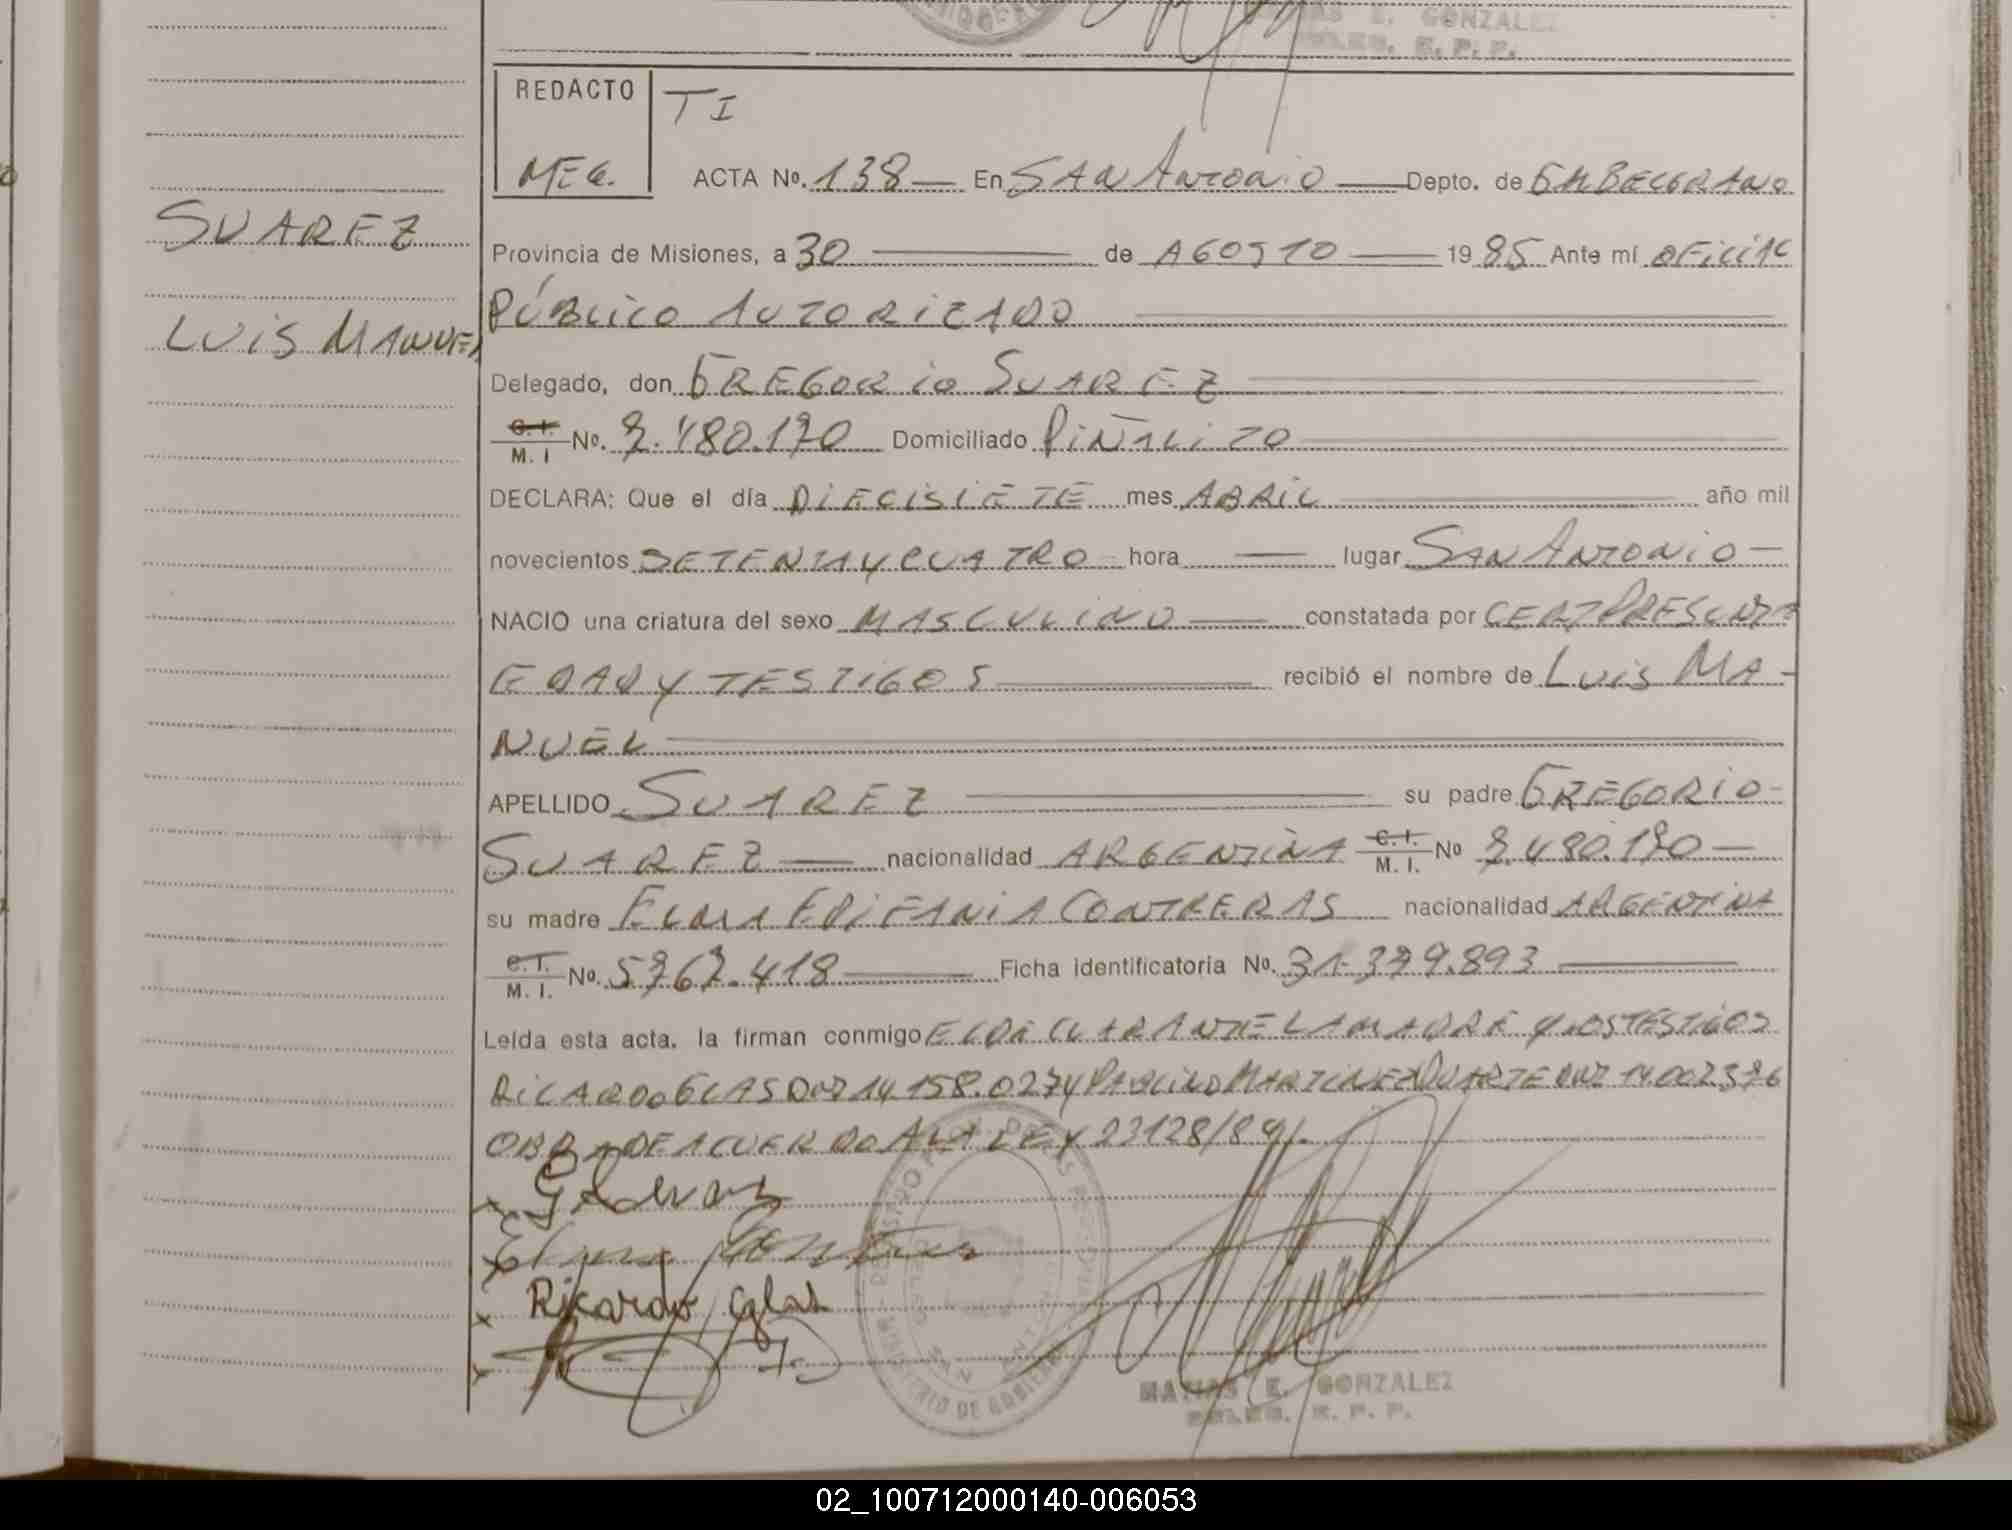 GONZALEZ
E. P. P.
REDACTO
TI
MEG.
ACTA Nº. 138 — En SAN ANTONIO — Depto. de GM BELGRANO
SUAREZ
Provincia de Misiones, a 30 — de AGOSTO — 1985 Ante mí OFICIAL
PÚBLICO AUTORIZADO
LUIS MANUEL
Delegado, don GREGORIO SUAREZ
C. I.
M. I Nº. 7.480.170 Domiciliado PIÑALITO
DECLARA: Que el día DIECISIETE mes ABRIL año mil
novecientos SETENTA Y CUATRO hora — lugar SAN ANTONIO —
NACIO una criatura del sexo MASCULINO — constatada por CERT PRESUNTA
EDAD Y TESTIGOS — recibió el nombre de LUIS MA-
NUEL
APELLIDO SUAREZ — su padre GREGORIO-
SUAREZ — nacionalidad ARGENTINA C. I. M. I. Nº 7.480.170 —
su madre ELMA EPIFANIA CONTRERAS nacionalidad ARGENTINA
C. I.
M. I. Nº. 5767.418 — Ficha identificatoria Nº. 31.379.893 —
Leída esta acta, la firman conmigo EL DECLARANTE LA MADRE Y LOS TESTIGOS
RICARDO GLAS DNI 14.158.027 Y PAULINO MARTINEZ DUARTE DNI 14.002376
OBRA DE ACUERDO A LA LEY 23128/84/.
Ricardo Glas
SAN ANTONIO
MINISTERIO DE GOBIERNO
MATIAS E. GONZALEZ
E. P. P.
02_100712000140-006053